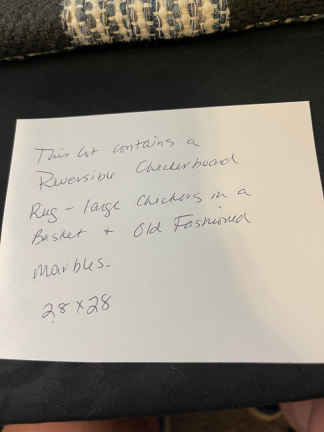 This lot contains a
Reversible Checkerboard
Rug - large Checkers in a
Basket + Old Fashioned
marbles.
28 x 28